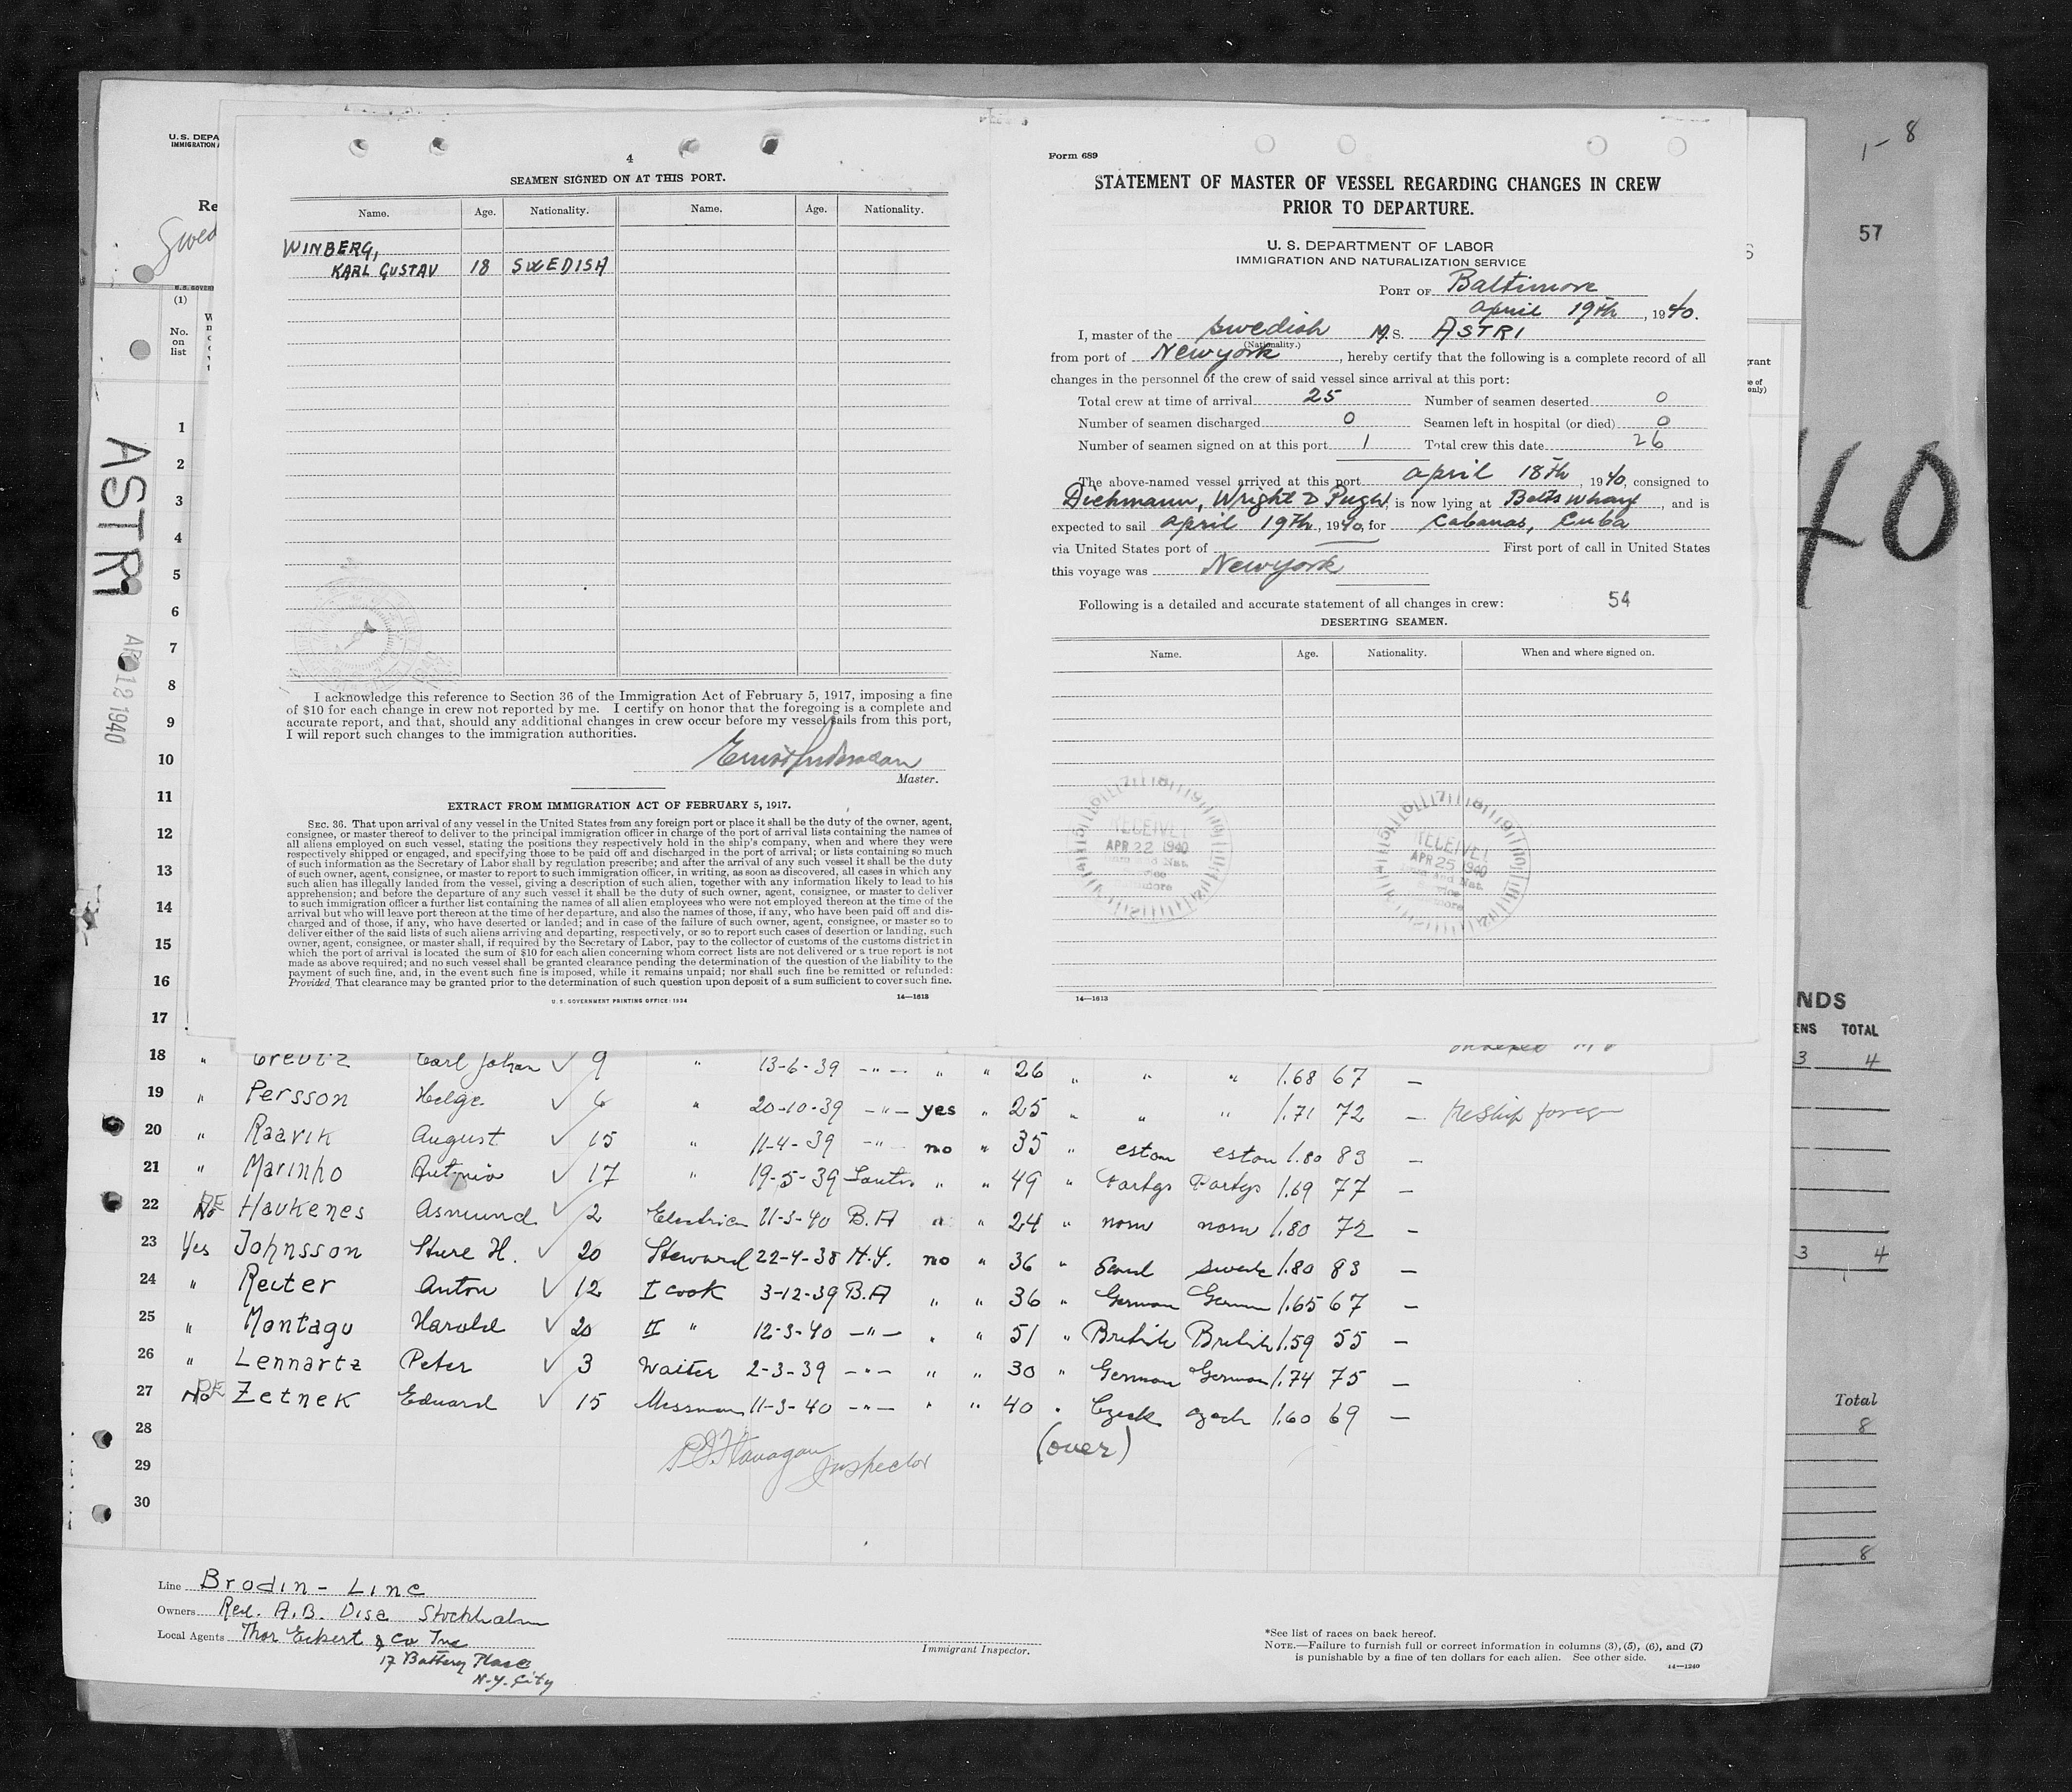 U. S. DEPA
IMMIGRATION
Re
Swed
(1)
No.
on
list
ASTRI
12 1940
1
2
3
4
5
6
7
8
9
10
11
12
13
14
15
16
17
4
SEAMEN SIGNED ON AT THIS PORT.
Name. Age. Nationality. Name. Age. Nationality.
WINBERG,
KARL GUSTAV 18 SWEDISH
I acknowledge this reference to Section 36 of the Immigration Act of February 5, 1917, imposing a fine
of $10 for each change in crew not reported by me. I certify on honor that the foregoing is a complete and
accurate report, and that, should any additional changes in crew occur before my vessel sails from this port,
I will report such changes to the immigration authorities.
Master.
EXTRACT FROM IMMIGRATION ACT OF FEBRUARY 5, 1917.
SEC. 36. That upon arrival of any vessel in the United States from any foreign port or place it shall be the duty of the owner, agent,
consignee, or master thereof to deliver to the principal immigration officer in charge of the port of arrival lists containing the names of
all aliens employed on such vessel, stating the positions they respectively hold in the ship's company, when and where they were
respectively shipped or engaged, and specifying those to be paid off and discharged in the port of arrival; or lists containing so much
of such information as the Secretary of Labor shall by regulation prescribe; and after the arrival of any such vessel it shall be the duty
of such owner, agent, consignee, or master to report to such immigration officer, in writing, as soon as discovered, all cases in which any
such alien has illegally landed from the vessel, giving a description of such alien, together with any information likely to lead to his
apprehension; and before the departure of any such vessel it shall be the duty of such owner, agent, consignee, or master to deliver
to such immigration officer a further list containing the names of all alien employees who were not employed thereon at the time of the
arrival but who will leave port thereon at the time of her departure, and also the names of those, if any, who have been paid off and dis-
charged and of those, if any, who have deserted or landed; and in case of the failure of such owner, agent, consignee, or master so to
deliver either of the said lists of such aliens arriving and departing, respectively, or so to report such cases of desertion or landing, such
owner, agent, consignee, or master shall, if required by the Secretary of Labor, pay to the collector of customs of the customs district in
which the port of arrival is located the sum of $10 for each alien concerning whom correct lists are not delivered or a true report is not
made as above required; and no such vessel shall be granted clearance pending the determination of the question of the liability to the
payment of such fine, and, in the event such fine is imposed, while it remains unpaid; nor shall such fine be remitted or refunded:
Provided, That clearance may be granted prior to the determination of such question upon deposit of a sum sufficient to cover such fine.
U. S. GOVERNMENT PRINTING OFFICE: 1934 14—1613
Form 689
STATEMENT OF MASTER OF VESSEL REGARDING CHANGES IN CREW
PRIOR TO DEPARTURE.
U. S. DEPARTMENT OF LABOR
IMMIGRATION AND NATURALIZATION SERVICE
PORT OF Baltimore
april 19th, 1940.
I, master of the swedish M.S. ASTRI
(Nationality.)
from port of Newyork, hereby certify that the following is a complete record of all
changes in the personnel of the crew of said vessel since arrival at this port:
Total crew at time of arrival 25 Number of seamen deserted 0
Number of seamen discharged 0 Seamen left in hospital (or died) 0
Number of seamen signed on at this port 1 Total crew this date 26
The above-named vessel arrived at this port april 18th, 1940, consigned to
Diehmann, Wright & Pugh, is now lying at Balts wharf, and is
expected to sail april 19th, 1940, for Cabanas, Cuba
via United States port of — First port of call in United States
this voyage was Newyork
Following is a detailed and accurate statement of all changes in crew: 54
DESERTING SEAMEN.
Name. Age. Nationality. When and where signed on.
RECEIVED
APR 22 1940
RECEIVED
APR 25 1940
14—1613
1-8
57
40
NDS
ENS TOTAL
3 4
3 4
Total
8
8
18 " Creutz Carl Johan √ 9 " 13-6-39 -"- " " 26 " " " 1.68 67 —
19 " Persson Helge √ 6 " 20-10-39 -"- yes " 25 " " " 1.71 72 — Reship foreign
20 " Raavik August √ 15 " 11-4-39 -"- no " 35 " eston eston 1.80 83 —
21 " Marinho Antonio √ 17 " 19-5-39 Santos " " 49 " Portgs Portgs 1.69 77 —
22 No Haukenes Asmund √ 2 Electrician 11-3-40 B.A " " 24 " norw norw 1.80 72 —
23 Yes Johnsson Sture H. √ 20 Steward 22-4-38 N.Y. no " 36 " Scand swede 1.80 83 —
24 " Reiter Anton √ 12 I cook 3-12-39 B.A " " 36 " German German 1.65 67 —
25 " Montagu Harold √ 20 II " 12-3-40 -"- " " 51 " British British 1.59 55 —
26 " Lennartz Peter √ 3 Waiter 2-3-39 -"- " " 30 " German German 1.74 75 —
27 No Zetnek Eduard √ 15 Messman 11-3-40 -"- " " 40 " Czech czech 1.60 69 —
28 (over)
29 Flanagan Inspector
30
Line Brodin-Line
Owners Red. A.B. Disa Stockholm
Local Agents Thor Eckert & Co Inc
17 Battery Place
N.Y. City
Immigrant Inspector.
*See list of races on back hereof.
NOTE.—Failure to furnish full or correct information in columns (3), (5), (6), and (7)
is punishable by a fine of ten dollars for each alien. See other side.
14—1240